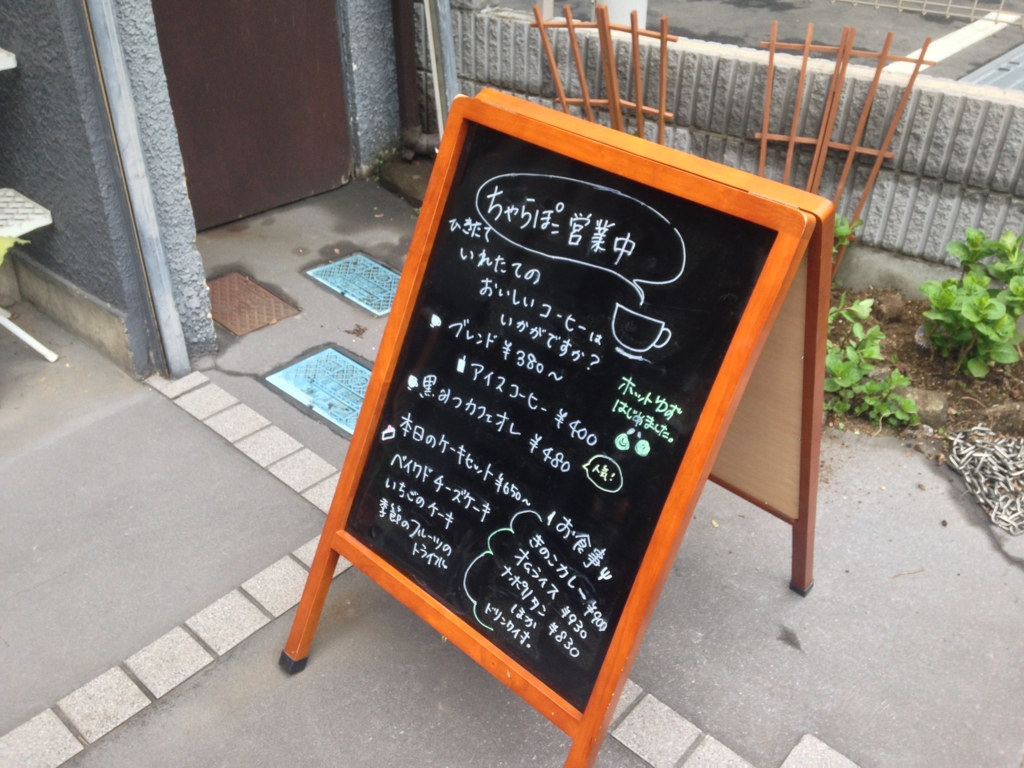 ちゃらぽこ営業中
ひきたて
いれたての
おいしいコーヒーは
いかがですか?
ブレンド ¥380~
アイスコーヒー ¥400
黒みつカフェオレ ¥480
人気!
ホットゆず
はじめました。
本日のケーキセット ¥650~
ベイクドチーズケーキ
いちごのケーキ
季節のフルーツの
トライフル
お食事
きのこカレー ¥900
オムライス ¥930
ナポリタン ¥830
ほか
ドリンク付き。